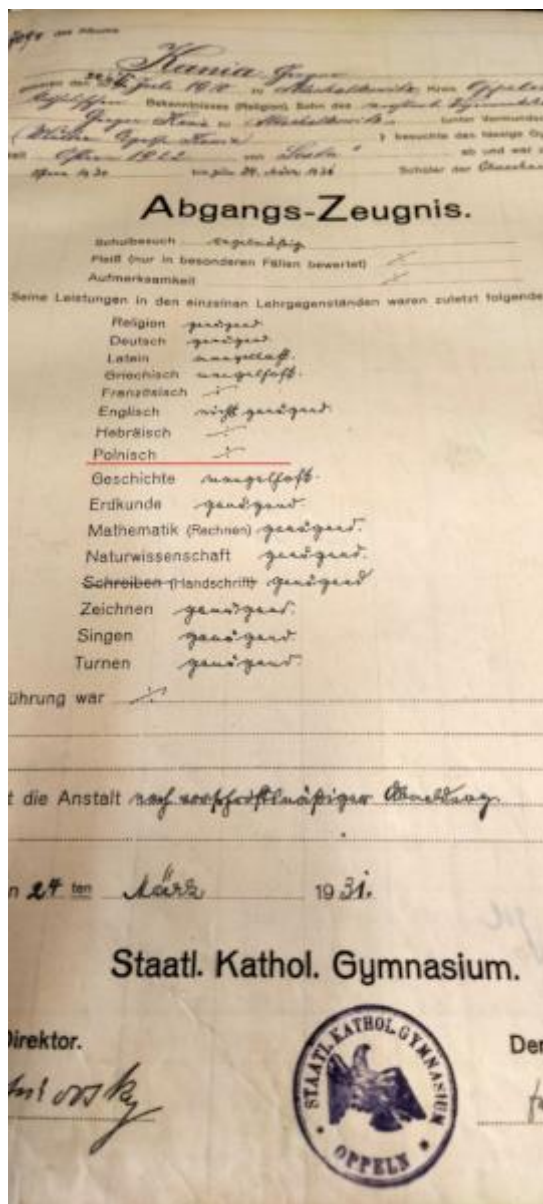 des Albums
Kania
Juli 19 zu Kreis Oppeln
Bekenntnisses (Religion), Sohn des
zu unter Vormundsch
besuchte den hiesige Gy
Ostern 1922 von ab und war z
Ostern 1930 bis zum 24. März 193 Schüler der
Abgangs-Zeugnis.
Schulbesuch regelmäßig
Fleiß (nur in besonderen Fällen bewertet) ·/·
Aufmerksamkeit ·/·
Seine Leistungen in den einzelnen Lehrgegenständen waren zuletzt folgende
Religion genügend.
Deutsch genügend.
Latein mangelhaft.
Griechisch mangelhaft.
Französisch ·/·
Englisch nicht genügend.
Hebräisch ·/·
Polnisch ·/·
Geschichte mangelhaft.
Erdkunde genügend.
Mathematik (Rechnen) genügend.
Naturwissenschaft genügend.
Schreiben (Handschrift) genügend
Zeichnen genügend.
Singen genügend.
Turnen genügend.
ührung war ·/·
t die Anstalt nach vorschriftsmäßiger Abmeldung.
n 24 ten März 1931.
Staatl. Kathol. Gymnasium.
Direktor. Der
STAATL. KATHOL. GYMNASIUM
OPPELN